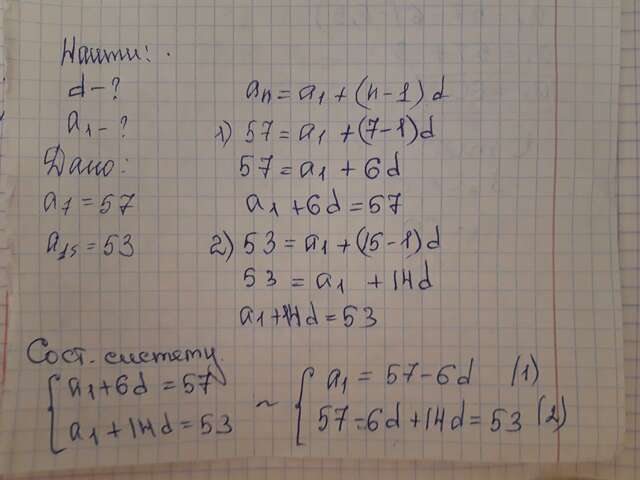 Найти:
d - ?
a₁ - ?
Дано:
a₇ = 57
a₁₅ = 53
aₙ = a₁ + (n-1)d
1) 57 = a₁ + (7-1)d
57 = a₁ + 6d
a₁ + 6d = 57
2) 53 = a₁ + (15-1)d
53 = a₁ + 14d
a₁ + 14d = 53
Сост. систему
{ a₁ + 6d = 57
a₁ + 14d = 53
~ { a₁ = 57 - 6d (1)
57 - 6d + 14d = 53 (2)